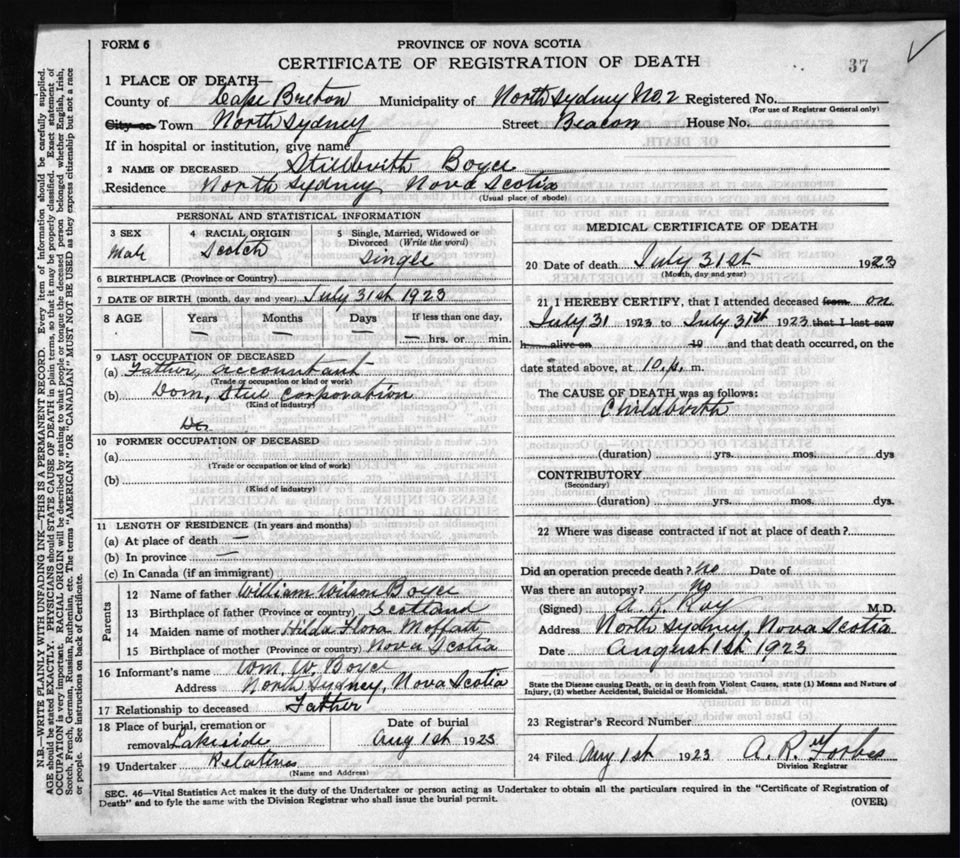 FORM 6
PROVINCE OF NOVA SCOTIA
CERTIFICATE OF REGISTRATION OF DEATH
37
1 PLACE OF DEATH—
County of Cape Breton Municipality of North Sydney No. 2 Registered No.
(For use of Registrar General only)
City or Town North Sydney Street Beacon House No.
If in hospital or institution, give name
2 NAME OF DECEASED Stillbirth Boyce
Residence North Sydney Nova Scotia
(Usual place of abode)
PERSONAL AND STATISTICAL INFORMATION
3 SEX
Male
4 RACIAL ORIGIN
Scotch
5 Single, Married, Widowed or Divorced (Write the word)
Single
6 BIRTHPLACE (Province or Country)
7 DATE OF BIRTH (month, day and year) July 31st 1923
8 AGE Years Months Days If less than one day,
— — — hrs. or min.
9 LAST OCCUPATION OF DECEASED
(a) Father, accountant
(Trade or occupation or kind of work)
(b) Dom, Steel Corporation
(Kind of industry)
Do.
10 FORMER OCCUPATION OF DECEASED
(a)
(Trade or occupation or kind of work)
(b)
(Kind of industry)
11 LENGTH OF RESIDENCE (In years and months)
(a) At place of death —
(b) In province —
(c) In Canada (if an immigrant)
Parents
12 Name of father William Wilson Boyce
13 Birthplace of father (Province or country) Scotland
14 Maiden name of mother Hilda Flora Moffatt
15 Birthplace of mother (Province or country) Nova Scotia
16 Informant's name Wm. W. Boyce
Address North Sydney, Nova Scotia
17 Relationship to deceased Father
18 Place of burial, cremation or removal Lakeside
Date of burial
Aug 1st 1923
19 Undertaker Relatives
(Name and Address)
MEDICAL CERTIFICATE OF DEATH
20 Date of death July 31st 1923
(Month, day and year)
21 I HEREBY CERTIFY, that I attended deceased from on
July 31 1923 to July 31st 1923 that I last saw
h alive on 19 and that death occurred, on the
date stated above, at 10 p. m.
The CAUSE OF DEATH was as follows:
Childbirth
(duration) yrs. mos. dys
CONTRIBUTORY
(Secondary)
(duration) yrs. mos. dys.
22 Where was disease contracted if not at place of death?
Did an operation precede death? No Date of
Was there an autopsy? No
(Signed) M.D.
Address North Sydney, Nova Scotia
Date August 1st, 1923
State the Disease causing Death, or in death from Violent Causes, state (1) Means and Nature of
Injury, (2) whether Accidental, Suicidal or Homicidal.
23 Registrar's Record Number
24 Filed Aug 1st 1923 A. R. Forbes
Division Registrar
SEC. 46—Vital Statistics Act makes it the duty of the Undertaker or person acting as Undertaker to obtain all the particulars required in the "Certificate of Registration of
Death" and to fyle the same with the Division Registrar who shall issue the burial permit.
(OVER)
N.B—WRITE PLAINLY WITH UNFADING INK—THIS IS A PERMANENT RECORD. Every item of information should be carefully supplied.
AGE should be stated EXACTLY. PHYSICIANS should STATE CAUSE OF DEATH in plain terms, so that it may be properly classified. Exact statement of
OCCUPATION is very important. RACIAL ORIGIN will be described by stating to what people or tongue the deceased person belonged, whether English, Irish,
Scotch, French, German, Russian, Ruthenian, etc. The terms "AMERICAN" OR "CANADIAN" MUST NOT BE USED as they express citizenship but not a race
or people. See instructions on back of Certificate.